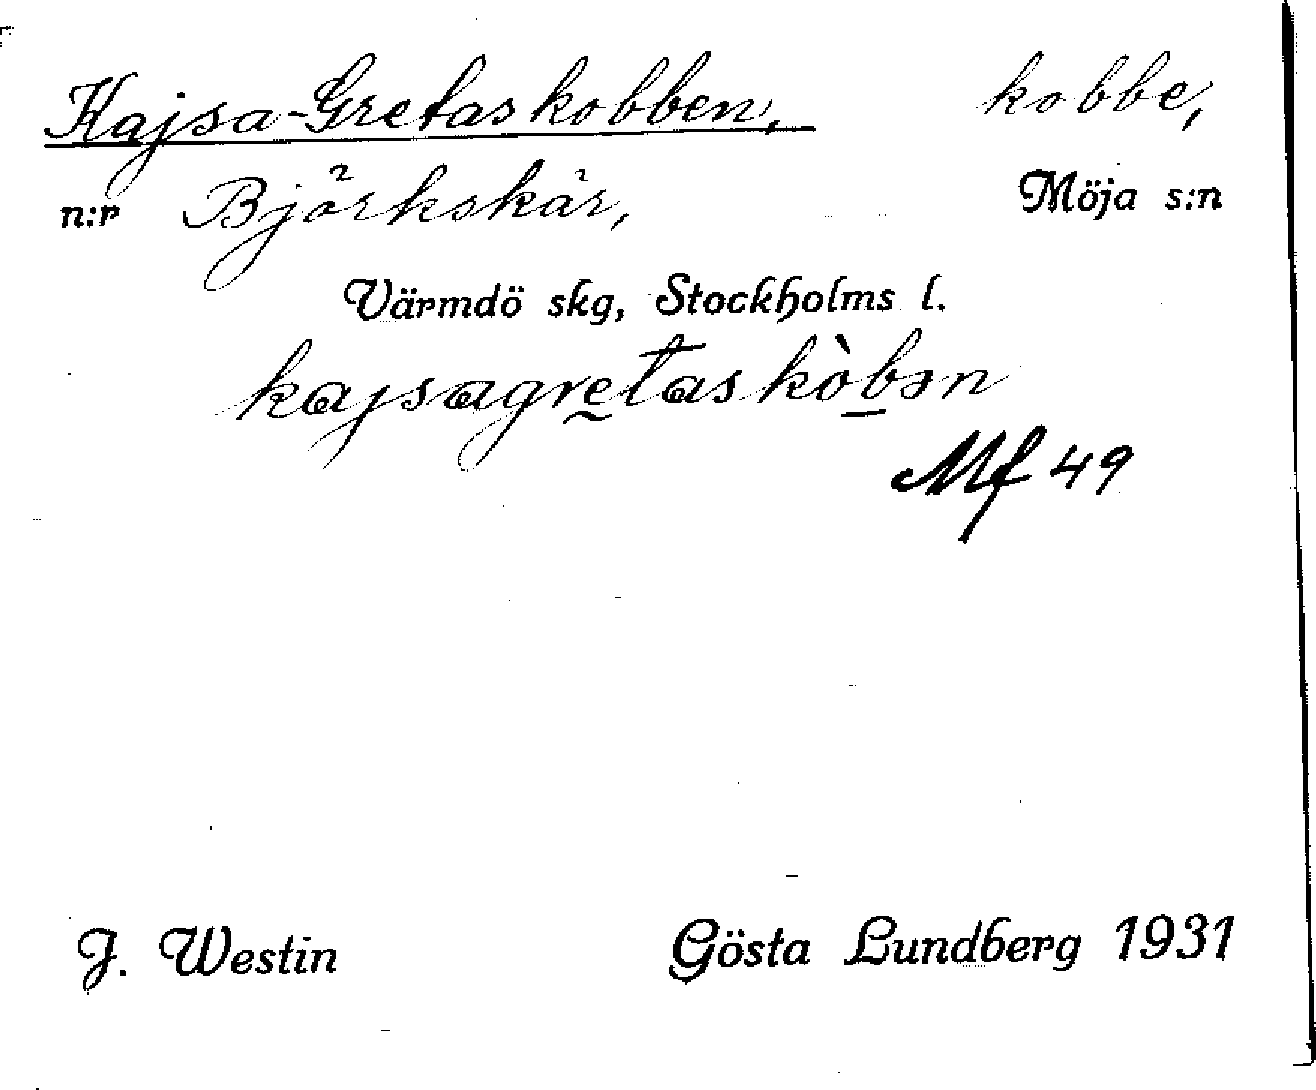 Kajsa-Gretas kobben, kobbe,
n:r Björkskär, Möja s:n
Värmdö skg, Stockholms l.
kajsagretaskòbən
Mf 49
J. Westin Gösta Lundberg 1931